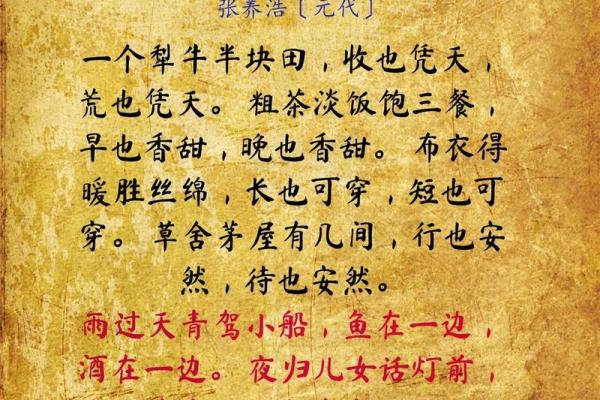 张养浩〔元代〕
一个犁牛半块田，收也凭天，
荒也凭天。粗茶淡饭饱三餐，
早也香甜，晚也香甜。布衣得
暖胜丝绵，长也可穿，短也可
穿。草舍茅屋有几间，行也安
然，待也安然。
雨过天青驾小船，鱼在一边，
酒在一边。夜归儿女话灯前，